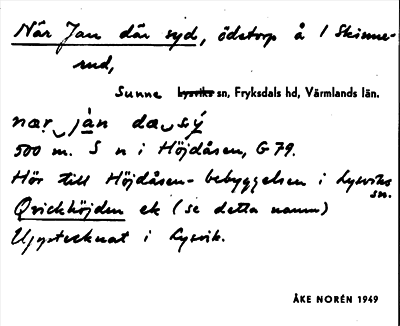 När Jan där syd, ödetorp å 1 Skinne-
rud,
Sunne Lysviks sn, Fryksdals hd, Värmlands län.
nær jàn dæ sý
500 m. S n i Höjdåsen, G 79.
Hör till Höjdåsen-bebyggelsen i Lysviks
sn.
Qvickhöjden ek (se detta namn)
Upptecknat i Lysvik.
ÅKE NORÉN 1949